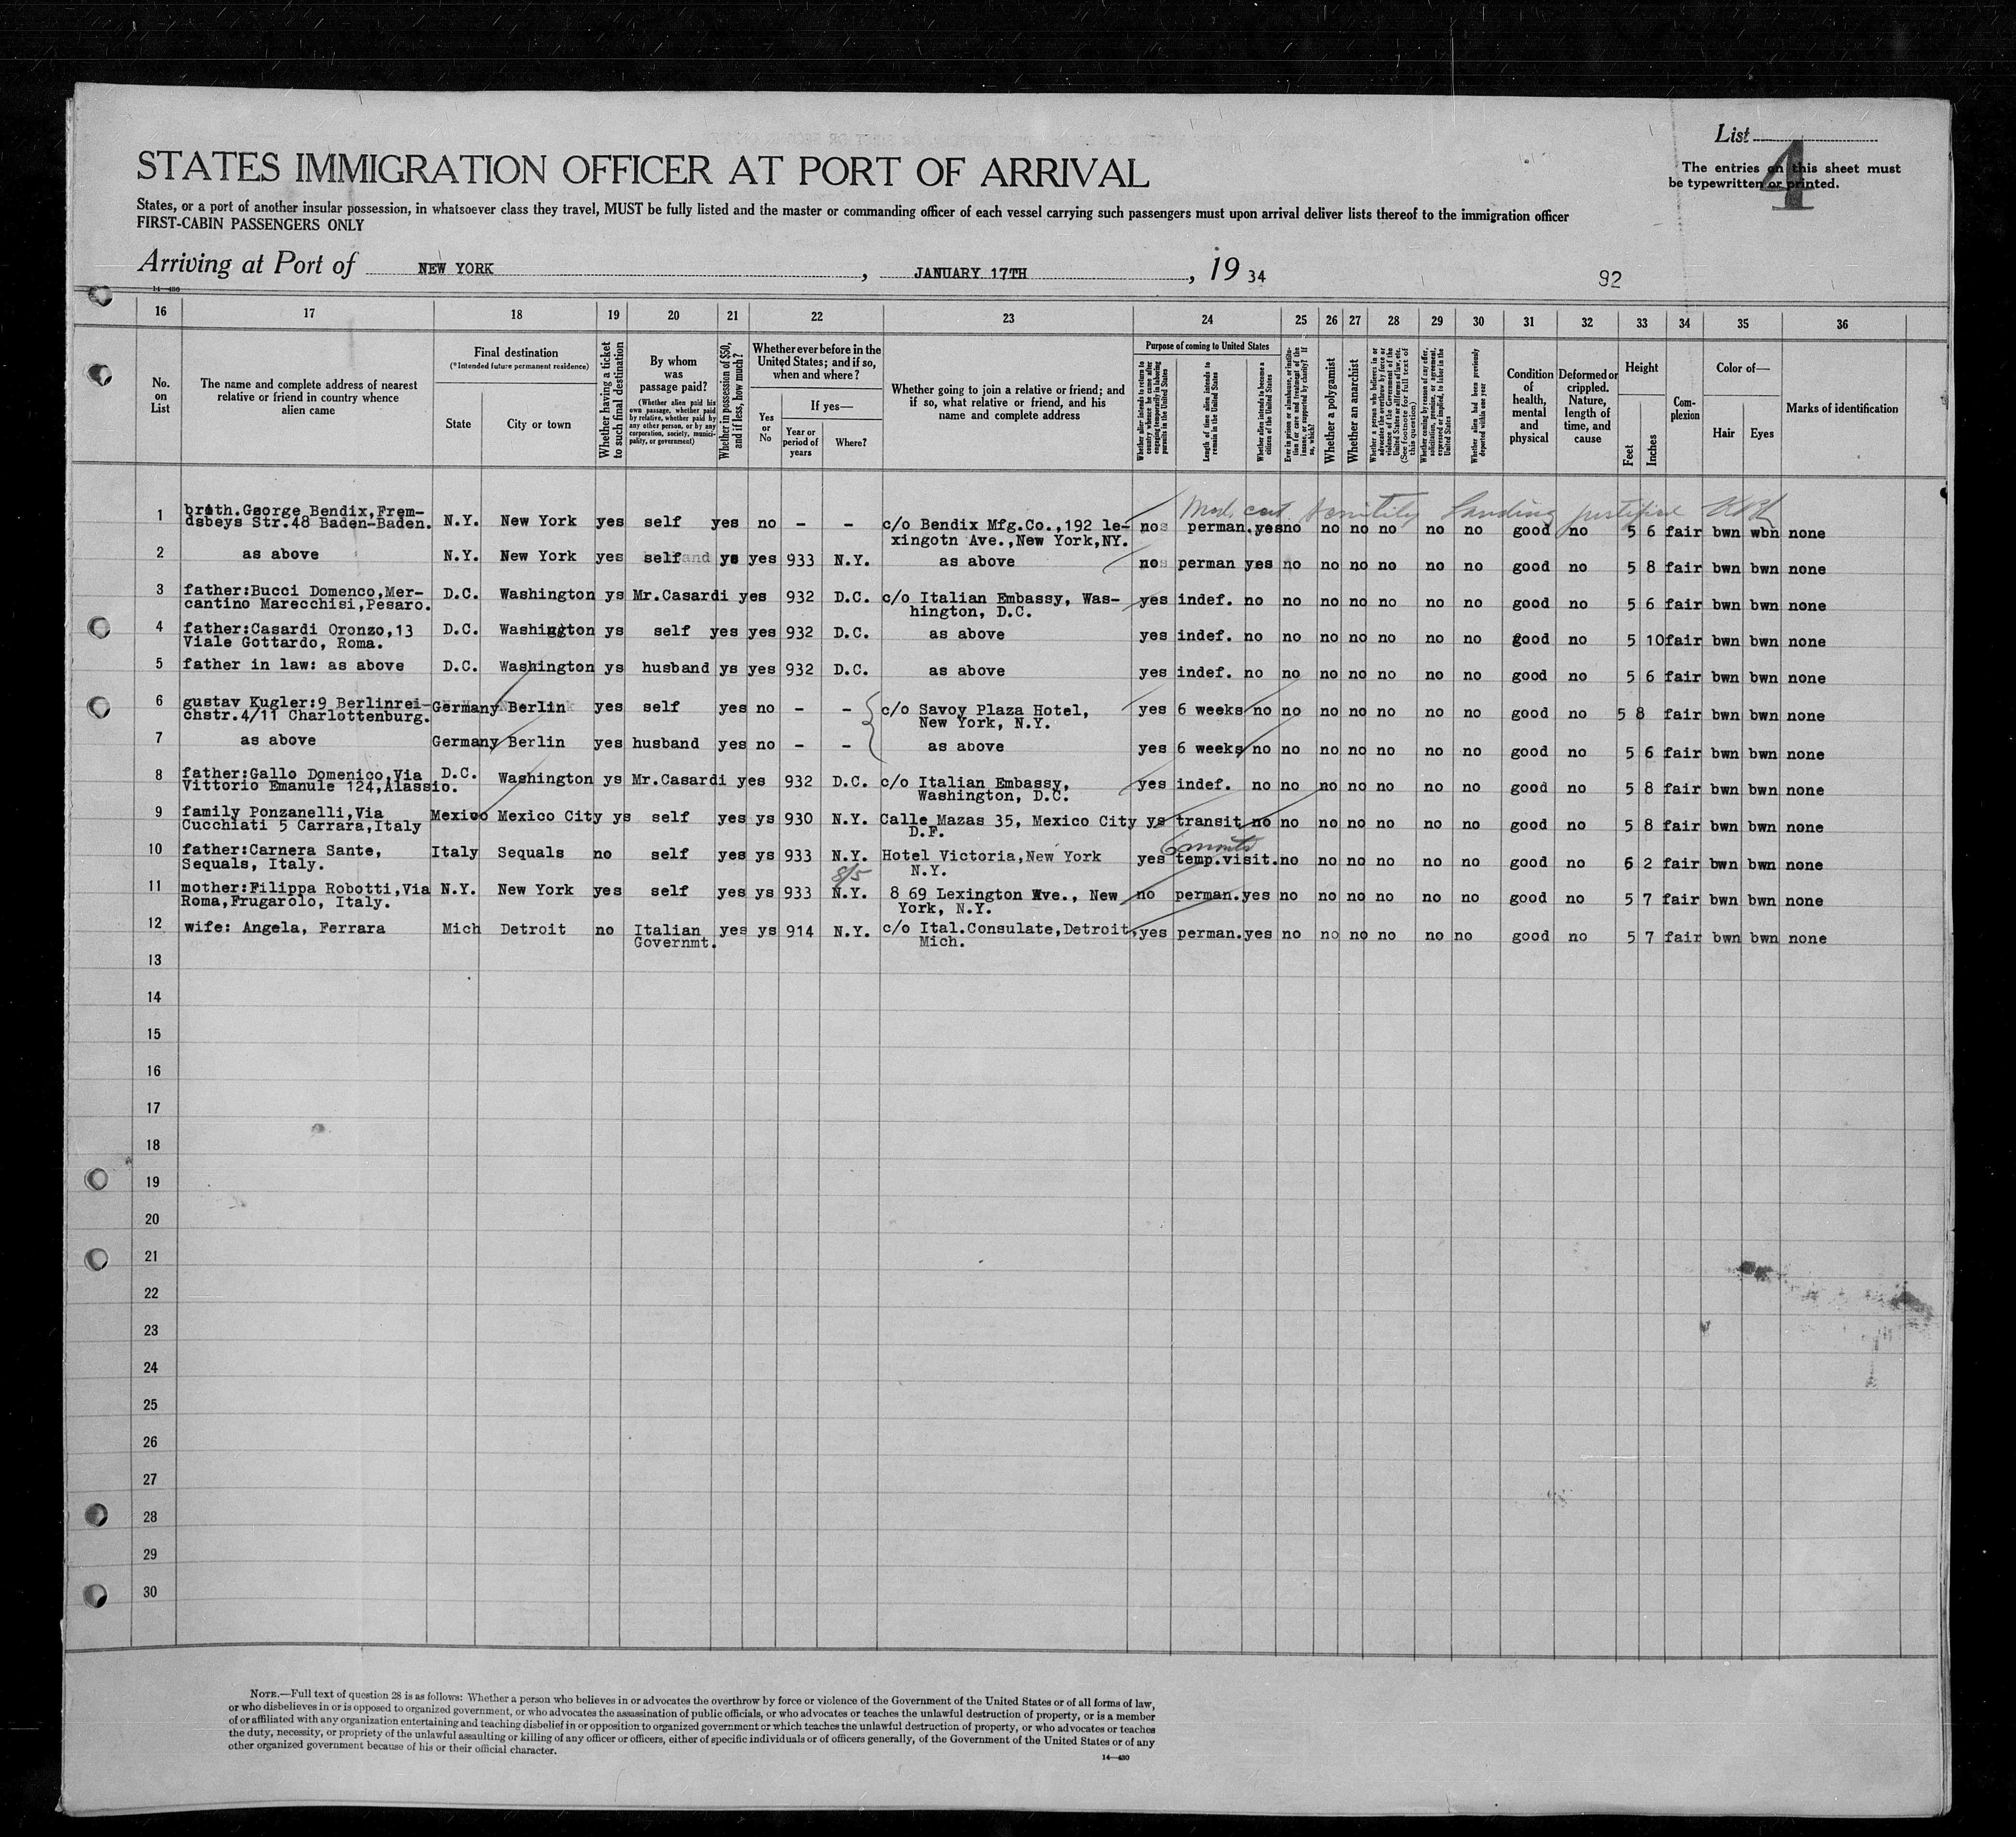 List
4
The entries on this sheet must
be typewritten or printed.
STATES IMMIGRATION OFFICER AT PORT OF ARRIVAL
States, or a port of another insular possession, in whatsoever class they travel, MUST be fully listed and the master or commanding officer of each vessel carrying such passengers must upon arrival deliver lists thereof to the immigration officer
FIRST-CABIN PASSENGERS ONLY
Arriving at Port of NEW YORK , JANUARY 17TH , 19 34
92
14—430
16 17 18 19 20 21 22 23 24 25 26 27 28 29 30 31 32 33 34 35 36
No. on List
The name and complete address of nearest relative or friend in country whence alien came
Final destination
(*Intended future permanent residence)
State
City or town
Whether having a ticket to such final destination
By whom was passage paid?
(Whether alien paid his own passage, whether paid by relative, whether paid by any other person, or by any corporation, society, municipality, or government)
Whether in possession of $50, and if less, how much?
Whether ever before in the United States; and if so, when and where?
Yes or No
If yes—
Year or period of years
Where?
Whether going to join a relative or friend; and if so, what relative or friend, and his name and complete address
Purpose of coming to United States
Whether alien intends to return to country whence he came after engaging temporarily in laboring pursuits in the United States
Length of time alien intends to remain in the United States
Whether alien intends to become a citizen of the United States
Ever in prison or almshouse, or institution for care and treatment of the insane, or supported by charity? If so, which?
Whether a polygamist
Whether an anarchist
Whether a person who believes in or advocates the overthrow by force or violence of the Government of the United States or all forms of law, etc. (See footnote for full text of this question)
Whether coming by reason of any offer, solicitation, promise, or agreement, expressed or implied, to labor in the United States
Whether alien had been previously deported within one year
Condition of health, mental and physical
Deformed or crippled. Nature, length of time, and cause
Height
Feet
Inches
Complexion
Color of—
Hair
Eyes
Marks of identification
Med. cert. Landing justified
1 broth.George Bendix,Frem- N.Y. New York yes self yes no - - c/o Bendix Mfg.Co.,192 le- no perman.yes no no no no no no good no 5 6 fair bwn wbn none
dsbeys Str.48 Baden-Baden. xingotn Ave.,New York,NY.
2 as above N.Y. New York yes self ys yes 933 N.Y. as above no perman yes no no no no no no good no 5 8 fair bwn bwn none
3 father:Bucci Domenco,Mer- D.C. Washington ys Mr.Casardi yes 932 D.C. c/o Italian Embassy, Was- yes indef. no no no no no no no good no 5 6 fair bwn bwn none
cantino Marecchisi,Pesaro. hington, D.C.
4 father:Casardi Oronzo,13 D.C. Washington ys self yes yes 932 D.C. as above yes indef. no no no no no no no good no 5 10 fair bwn bwn none
Viale Gottardo, Roma.
5 father in law: as above D.C. Washington ys husband ys yes 932 D.C. as above yes indef. no no no no no no no good no 5 6 fair bwn bwn none
6 gustav Kugler:9 Berlinrei- Germany Berlin yes self yes no - - c/o Savoy Plaza Hotel, yes 6 weeks no no no no no no no good no 5 8 fair bwn bwn none
chstr.4/11 Charlottenburg. New York, N.Y.
7 as above Germany Berlin yes husband yes no - - as above yes 6 weeks no no no no no no no good no 5 6 fair bwn bwn none
8 father:Gallo Domenico,Via D.C. Washington ys Mr.Casardi yes 932 D.C. c/o Italian Embassy, yes indef. no no no no no no no good no 5 8 fair bwn bwn none
Vittorio Emanule 124,Alassio. Washington, D.C.
9 family Ponzanelli,Via Mexico Mexico City ys self yes ys 930 N.Y. Calle Mazas 35, Mexico City ys transit no no no no no no no good no 5 8 fair bwn bwn none
Cucchiati 5 Carrara,Italy D.F.
6 months
10 father:Carnera Sante, Italy Sequals no self yes ys 933 N.Y. Hotel Victoria,New York yes temp.visit.no no no no no no good no 6 2 fair bwn bwn none
Sequals, Italy. N.Y.
8/5
11 mother:Filippa Robotti,Via N.Y. New York yes self yes ys 933 N.Y. 8 69 Lexington Ave., New no perman.yes no no no no no no good no 5 7 fair bwn bwn none
Roma,Frugarolo, Italy. York, N.Y.
12 wife: Angela, Ferrara Mich Detroit no Italian yes ys 914 N.Y. c/o Ital.Consulate,Detroit, yes perman.yes no no no no no no good no 5 7 fair bwn bwn none
Governmt. Mich.
13
14
15
16
17
18
19
20
21
22
23
24
25
26
27
28
29
30
NOTE.—Full text of question 28 is as follows: Whether a person who believes in or advocates the overthrow by force or violence of the Government of the United States or of all forms of law,
or who disbelieves in or is opposed to organized government, or who advocates the assassination of public officials, or who advocates or teaches the unlawful destruction of property, or is a member
of or affiliated with any organization entertaining and teaching disbelief in or opposition to organized government or which teaches the unlawful destruction of property, or who advocates or teaches
the duty, necessity, or propriety of the unlawful assaulting or killing of any officer or officers, either of specific individuals or of officers generally, of the Government of the United States or of any
other organized government because of his or their official character.
14—430